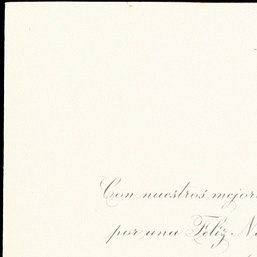 Con nuestros mejor
por una Feliz Na